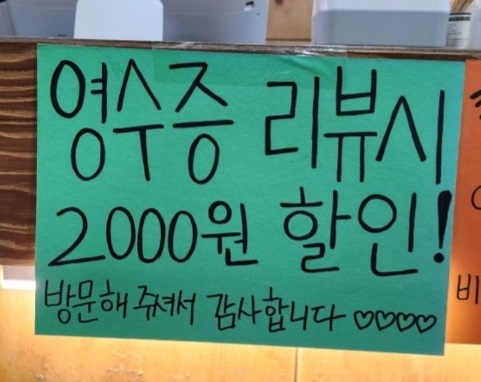 영수증 리뷰시
2000원 할인!
방문해 쥬셔서 감사합니다 ♡♡♡♡
비